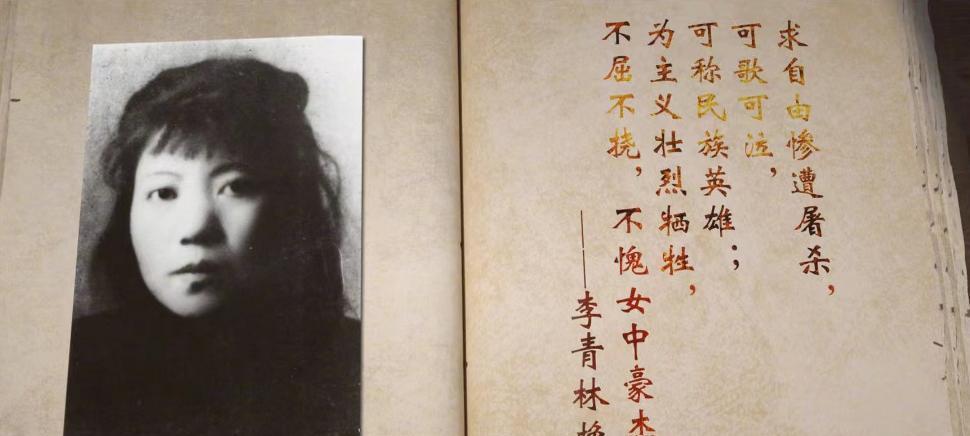 求自由惨遭屠杀，
可歌可泣，
可称民族英雄；
为主义壮烈牺牲，
不屈不挠，不愧女中豪杰
——李青林挽